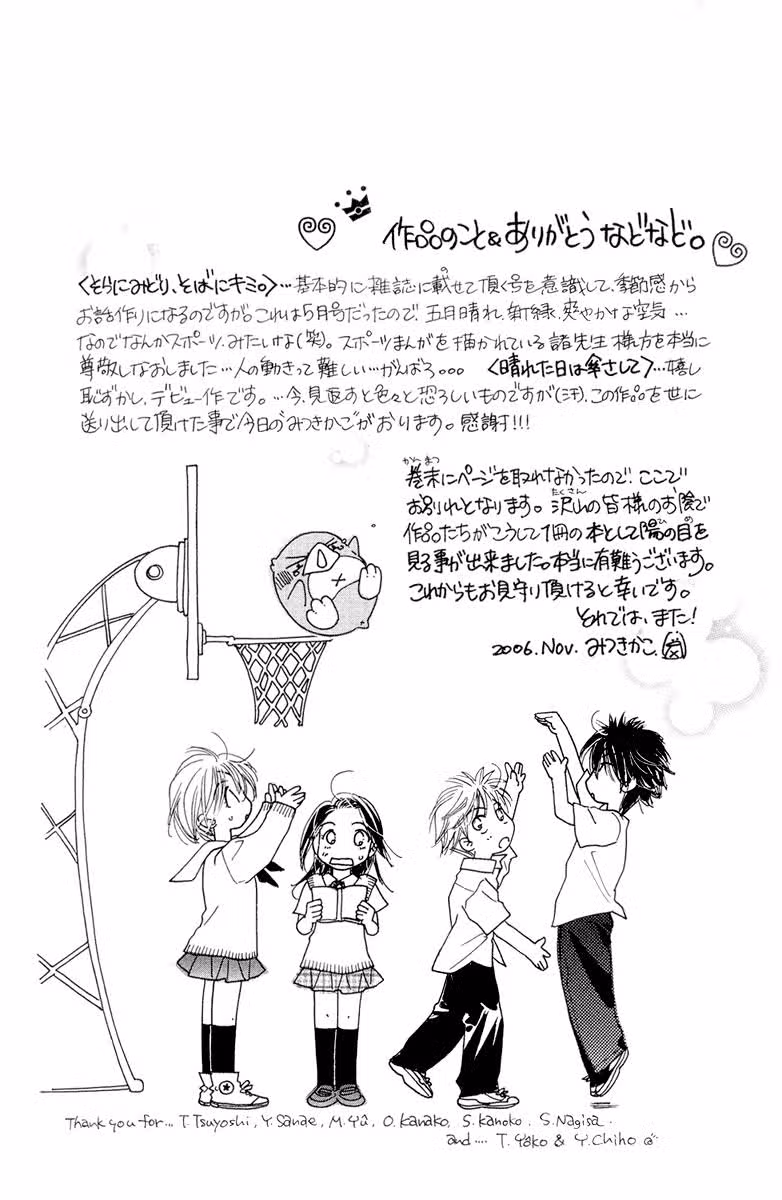 作品のこと&ありがとうなどなど。
<そらにみどり、そばにキミ。>…基本的に雑誌に載せて頂く号を意識して、季節感から
お話作りになるのですが。これは5月号だったので、五月晴れ、新緑、爽やかな空気…
なのでなんかスポーツ、みたいけな(笑)。スポーツまんがを描かれている諸先生様方を本当に
尊敬しなおしました…人の動きって難しい…がんばろ。。。 <晴れた日は傘さして>…嬉し
恥ずかし、デビュー作です。…今、見返すと色々と恐ろしいものですが(汗)、この作品を世に
送り出して頂けた事で今日のみつきかこがおります。感謝!!!
巻末にページを取れなかったので、ここで
お別れとなります。沢山の皆様のお陰で
作品たちがこうして1冊の本として陽の目を
見る事が出来ました。本当に有難うございます。
これからもお見守り頂けると幸いです。
それでは、また!
2006.Nov. みつきかこ
Thank you for... T.Tsuyoshi, Y.Sanae, M.Yû, O.Kanako, S.Kanoko, S.Nagisa.
and.... T.Yôko & Y.Chiho